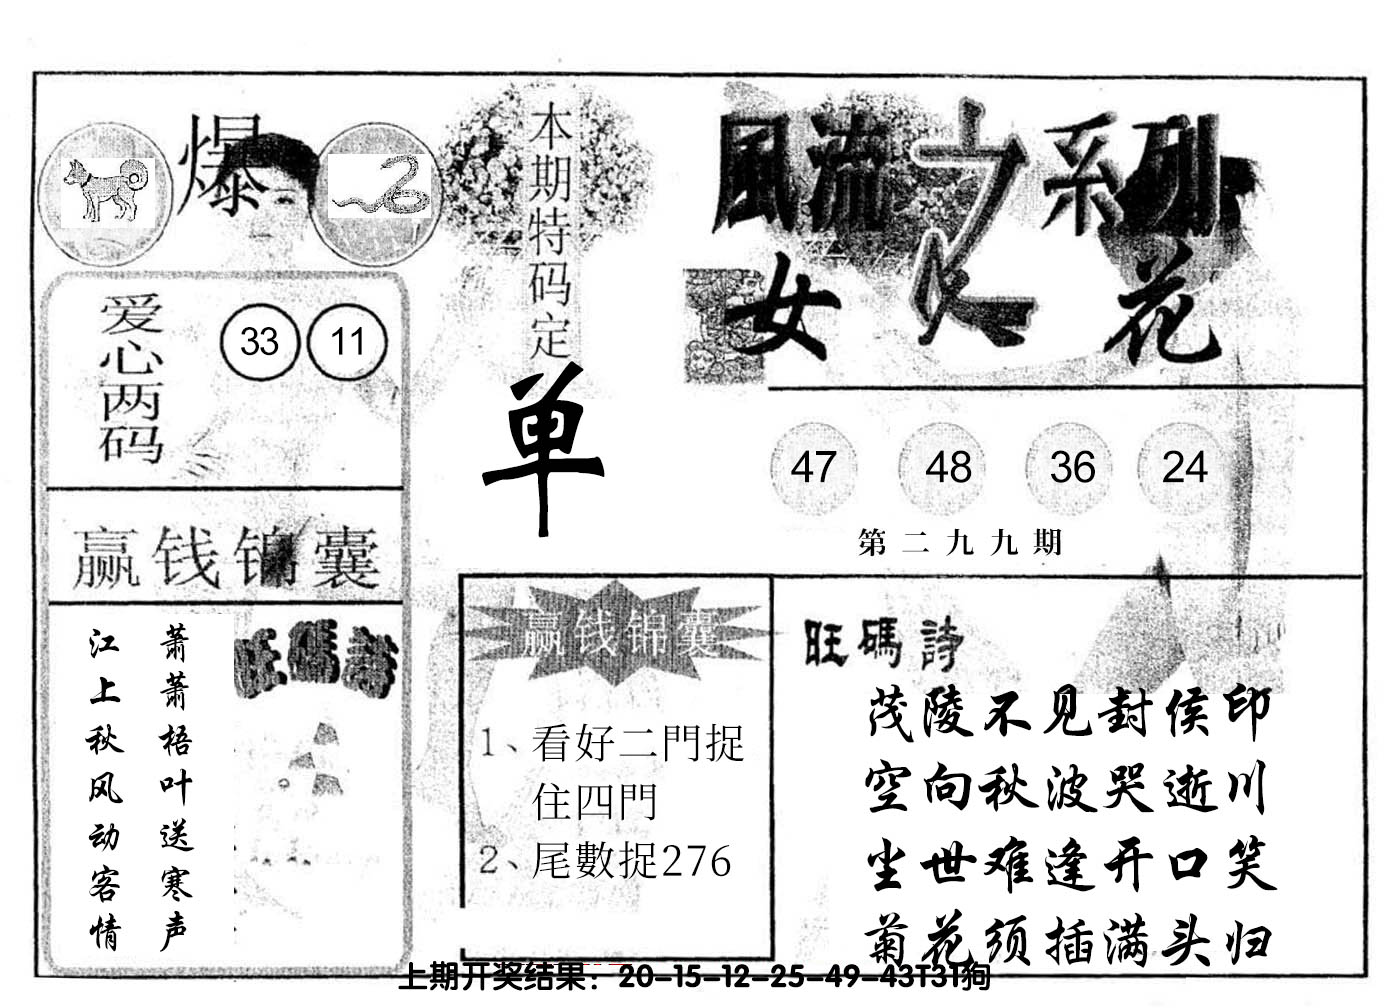 爆
爱心两码
33 11
赢钱锦囊
萧萧梧叶送寒声
江上秋风动客情
旺碼詩
本期特码定
单
赢钱锦囊
1、看好二門捉
住四門
2、尾數捉276
風流之系列
女人花
47 48 36 24
第二九九期
旺碼詩
茂陵不见封侯印
空向秋波哭逝川
尘世难逢开口笑
菊花须插满头归
上期开奖结果：20-15-12-25-49-43T31狗